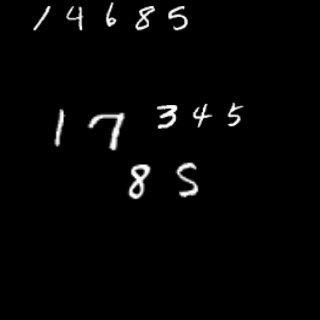 14685
17 345
85